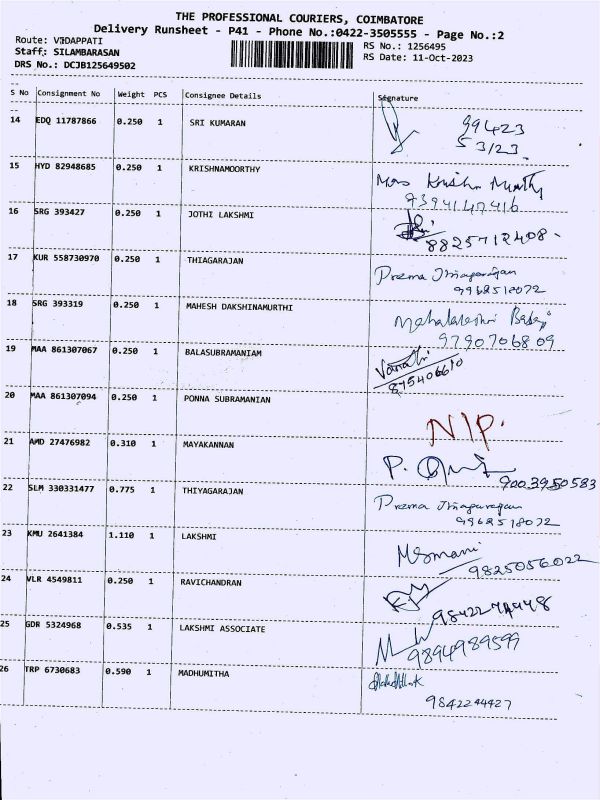 THE PROFESSIONAL COURIERS, COIMBATORE
Delivery Runsheet - P41 - Phone No.:0422-3505555 - Page No.:2
Route: VEDAPPATI
RS No.: 1256495
Staff: SILAMBARASAN
RS Date: 11-Oct-2023
DRS No.: DCJB125649502
S No Consignment No Weight PCS Consignee Details Signature
14 EDQ 11787866 0.250 1 SRI KUMARAN 99423
53/23
15 HYD 82948685 0.250 1 KRISHNAMOORTHY Mrs Krishna Murthy
16 SRG 393427 0.250 1 JOTHI LAKSHMI
8825712408
17 KUR 558730970 0.250 1 THIAGARAJAN Prema Thiagarajan
9962518072
18 SRG 393319 0.250 1 MAHESH DAKSHINAMURTHI Mahalakshmi Balaji
9790706809
19 MAA 861307067 0.250 1 BALASUBRAMANIAM
875406610
20 MAA 861307094 0.250 1 PONNA SUBRAMANIAN N/P.
21 AMD 27476982 0.310 1 MAYAKANNAN P.
9003950583
22 SLM 330331477 0.775 1 THIYAGARAJAN Prema Thiagarajan
9962518072
23 KMU 2641384 1.110 1 LAKSHMI
9825056022
24 VLR 4549811 0.250 1 RAVICHANDRAN
25 GDR 5324968 0.535 1 LAKSHMI ASSOCIATE
9894989599
26 TRP 6730683 0.590 1 MADHUMITHA
9842244427